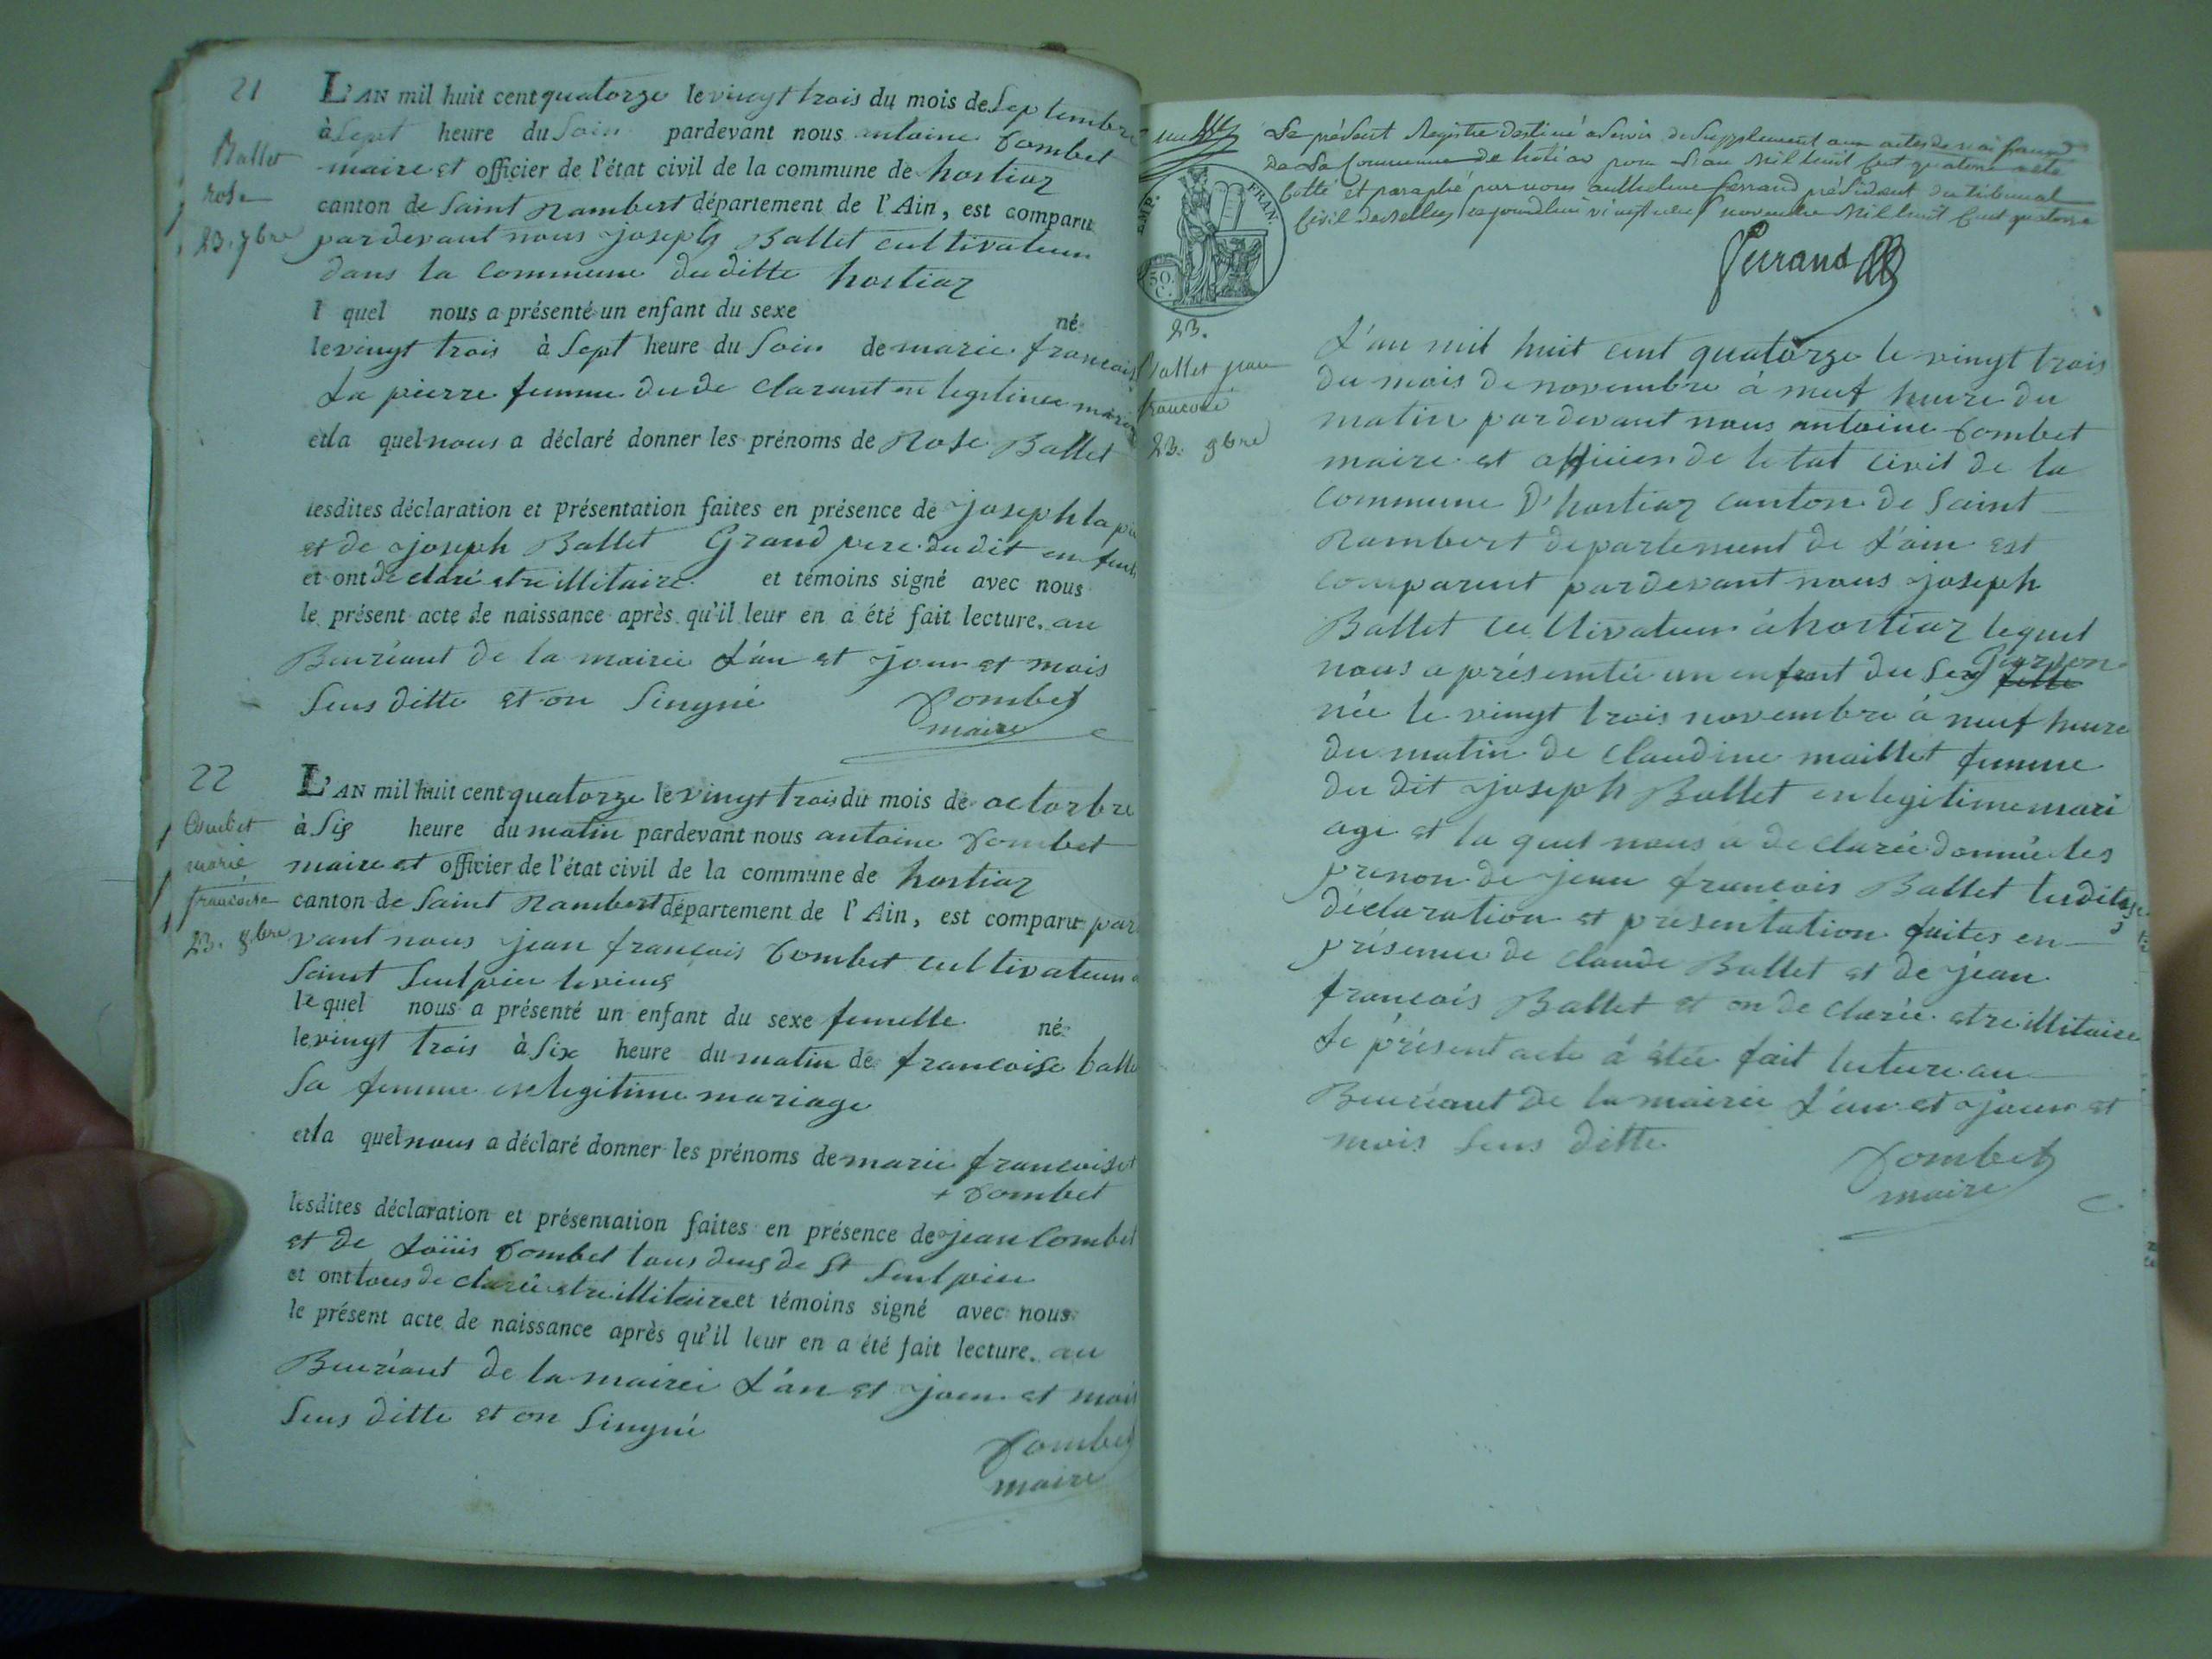 21
Ballet
rose
23. 7bre
L'AN mil huit cent quatorze le vingt trois du mois de Septembre
à Sept heure du Soir pardevant nous antoine Combet
maire et officier de l'état civil de la commune de hostiaz
canton de Saint Rambert département de l'Ain, est comparu
pardevant nous joseph Ballet cultivateur
dans la commune du ditte hostiaz
l quel nous a présenté un enfant du sexe né
le vingt trois à Sept heure du Soir de marie francois
La pierre femme du de clarant en legitime mari
et la quel nous a déclaré donner les prénoms de Rose Ballet
lesdites déclaration et présentation faites en présence de joseph la pi
et de joseph Ballet Grand pere du dit enfent
et ont de claré etre illitaire et témoins signé avec nous
le présent acte de naissance après qu'il leur en a été fait lecture. au
Bureaut de la mairie L'an et jour et mois
Sus ditte et on Singné
Combet
maire
22
Combet
marie
francoise
23. 8bre
L'AN mil huit cent quatorze le vingt trois du mois de octorbre
à Six heure du matin pardevant nous antoine Combet
maire et officier de l'état civil de la commune de hostiaz
canton de Saint Rambert département de l'Ain, est comparu par
vant nous jean francois Combet cultivateur a
Saint Sulpice le vieux
le quel nous a présenté un enfant du sexe femelle né
le vingt trois à Six heure du matin de francoise balle
Sa femme en legitime mariage
et la quel nous a déclaré donner les prénoms de marie francoise
+ Combet
lesdites déclaration et présentation faites en présence de jean Combet
et de Loüis Combet tous deus de St Sulpice
et ont tous de claré etre illitaire et témoins signé avec nous
le présent acte de naissance après qu'il leur en a été fait lecture. au
Bureaut de la mairie L'an et jour et mois
Sus ditte et on Singné
Combet
maire
Le présent Registre destiné à Servir de Supplement aux actes de naissances
de La Commune de hostiaz pour L'an Mil huit Cent quatorze a été
Cotté et paraphé par nous anthelme ferrand président du tribunal
Civil de Belley ce jourdhui vingt neuf novembre Mil huit Cent quatorze
Ferrand
TIMB. FRAN.
50 C.
23.
Ballet jean
francois
23. 9bre
L'an mil huit cent quatorze le vingt trois
du mois de novembre à neuf heure du
matin pardevant nous antoine Combet
maire et officier de le tat civil de la
commune D'hostiaz canton de Saint
Rambert departement de L'ain est
comparut pardevant nous joseph
Ballet cultivateur à hostiaz lequel
nous a présentée un enfant du Sex felle Garson
née le vingt trois novembre à neuf heure
du matin de Claudine maillet femme
du dit joseph Ballet en legitime mari
age et la quel nous a de clarée donnée les
prenon de jean francois Ballet les dites
déclaration et présentation faites en
présence de claude Ballet et de jean
francois Ballet et on de clarée etre illitaire
Le présent acte a étée fait lecture au
Bureaut de la mairie L'an et jour et
mois Sus ditte
Combet
maire